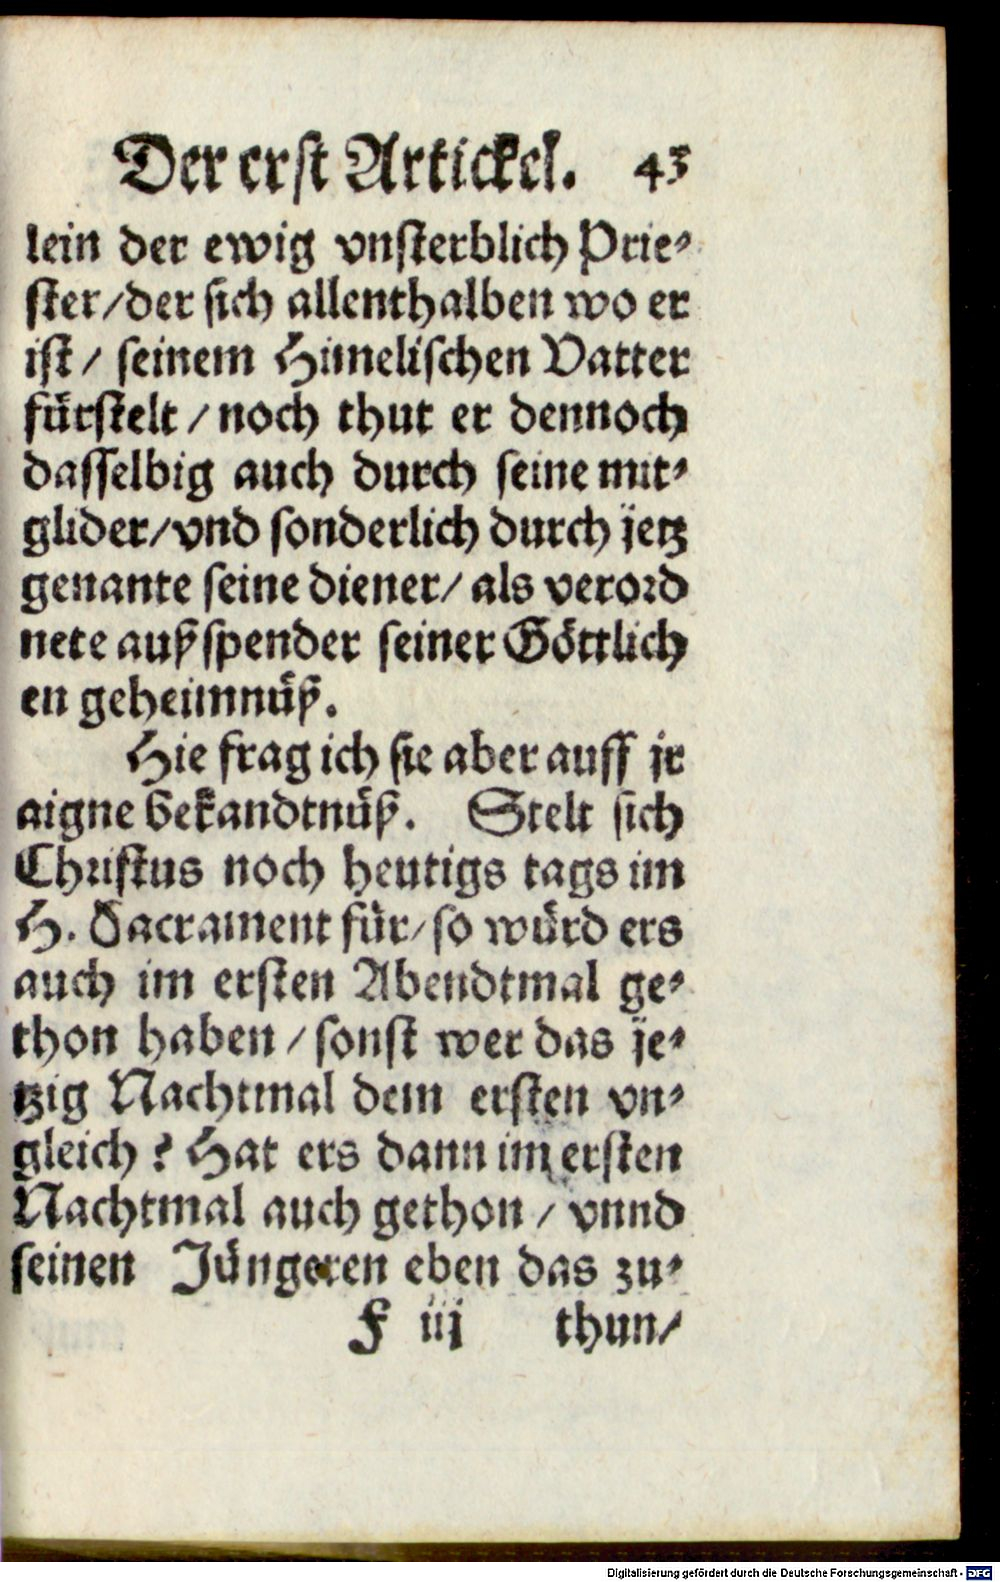 Der erst Artickel. 43
lein der ewig vnsterblich Prie⸗
ster/der sich allenthalben wo er
ist/ seinem Himelischen Vatter
fürstelt/noch thut er dennoch
dasselbig auch durch seine mit⸗
glider/vnd sonderlich durch jetz
genante seine diener/ als verord
nete außspender seiner Göttlich
en geheimnüß.
Hie frag ich sie aber auff jr
aigne bekandtnüß. Stelt sich
Christus noch heutigs tags im
H. Sacrament für/so würd ers
auch im ersten Abendtmal ge⸗
thon haben/sonst wer das je⸗
tzig Nachtmal dem ersten vn⸗
gleich? Hat ers dann im ersten
Nachtmal auch gethon/ vnnd
seinen Jüngeren eben das zu⸗
F iij thun/
Digitalisierung gefördert durch die Deutsche Forschungsgemeinschaft - DFG